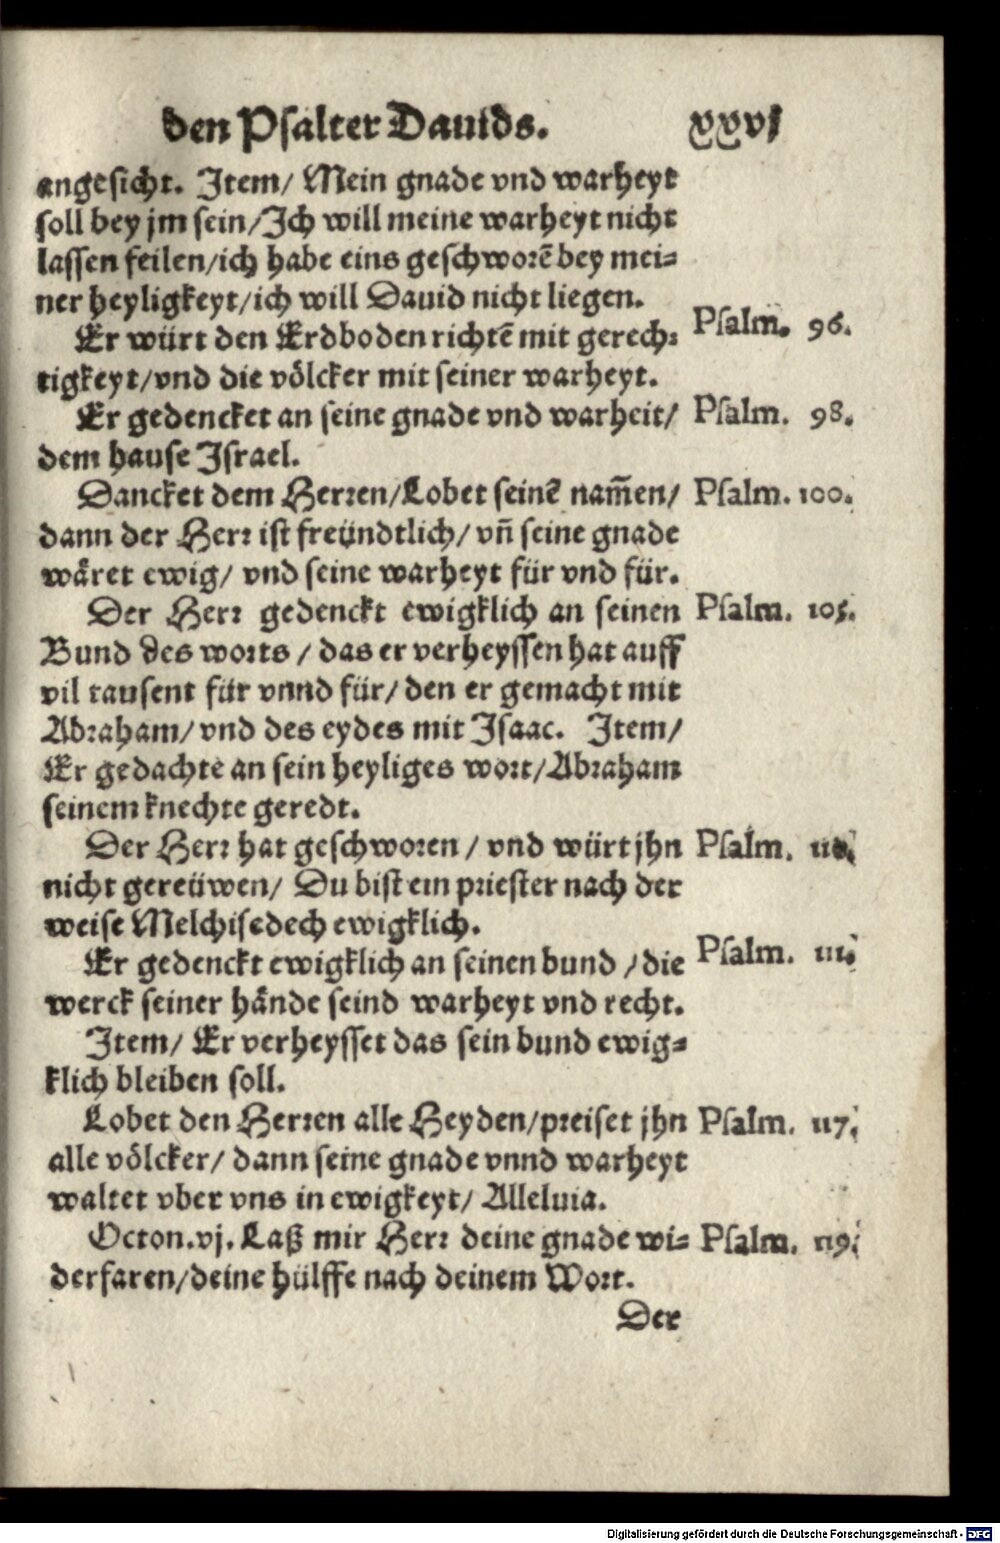 den Psalter Dauids. xxvj
angesicht. Item/ Mein gnade vnd warheyt
soll bey jm sein/Ich will meine warheyt nicht
lassen feilen/ich habe eins geschworē bey mei⸗
ner heyligkeyt/ich will Dauid nicht liegen.
Er würt den Erdboden richtē mit gerech⸗ Psalm. 96.
tigkeyt/vnd die völcker mit seiner warheyt.
Er gedencket an seine gnade vnd warheit/ Psalm. 98.
dem hause Israel.
Dancket dem Herren/Lobet seinē nam̄en/ Psalm. 100.
dann der Herr ist freündtlich/ vn̄ seine gnade
wäret ewig/ vnd seine warheyt für vnd für.
Der Herr gedenckt ewigklich an seinen Psalm. 105.
Bund des worts / das er verheyssen hat auff
vil tausent für vnnd für/ den er gemacht mit
Abraham/ vnd des eydes mit Isaac. Item/
Er gedachte an sein heyliges wort/Abraham
seinem knechte geredt.
Der Herr hat geschworen / vnd würt jhn Psalm. 110.
nicht gereüwen/ Du bist ein priester nach der
weise Melchisedech ewigklich.
Er gedenckt ewigklich an seinen bund /die Psalm. 111.
werck seiner hände seind warheyt vnd recht.
Item/ Er verheysset das sein bund ewig⸗
klich bleiben soll.
Lobet den Herren alle Heyden/preiset jhn Psalm. 117.
alle völcker/ dann seine gnade vnnd warheyt
waltet vber vns in ewigkeyt/ Alleluia.
Octon.vj. Laß mir Herr deine gnade wi⸗ Psalm. 119.
derfaren/deine hülffe nach deinem Wort.
Der
Digitalisierung gefördert durch die Deutsche Forschungsgemeinschaft - DFG